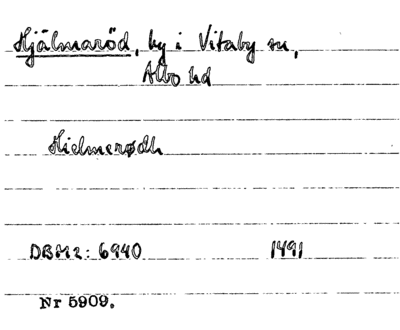 Hjälmaröd, by i Vitaby sn,
Albo hd
Hielmerødh
DBH2: 6940 1491
Nr 5909.